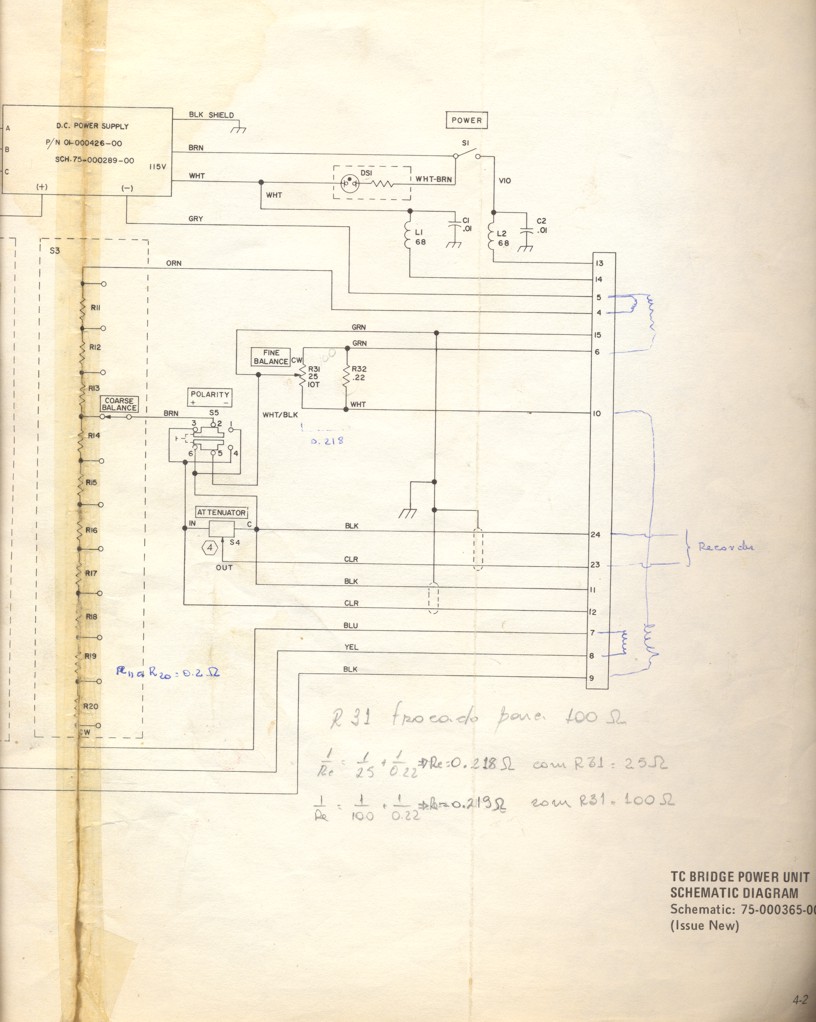 BLK SHIELD
POWER
A
D.C. POWER SUPPLY
B
P/N 01-000426-00
BRN
S1
C
SCH. 75-000289-00
115V
WHT
DS1
WHT-BRN
VIO
(+)
(-)
WHT
GRY
L1
68
C1
.01
L2
68
C2
.01
S3
ORN
13
14
5
4
R11
GRN
15
R12
FINE
BALANCE
CW
GRN
6
R31
25
10T
R32
.22
R13
COARSE
BALANCE
POLARITY
+ -
BRN
S5
WHT/BLK
WHT
10
3 2 1
R14
0.218
6 5 4
R15
ATTENUATOR
R16
IN
C
S4
BLK
24
4
OUT
CLR
23
R17
BLK
11
CLR
12
R18
BLU
7
R19
YEL
8
R11 a R20 = 0.2 Ω
BLK
9
R20
CW
R31 trocado para 100 Ω
1/Re = 1/25 + 1/0.22 ⇒ Re = 0.218 Ω com R31 = 25 Ω
1/Re = 1/100 + 1/0.22 ⇒ Re = 0.219 Ω com R31 = 100 Ω
TC BRIDGE POWER UNIT
SCHEMATIC DIAGRAM
Schematic: 75-000365-00
(Issue New)
4-2